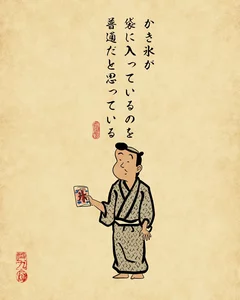 かき氷が
袋に入っているのを
普通だと思っている